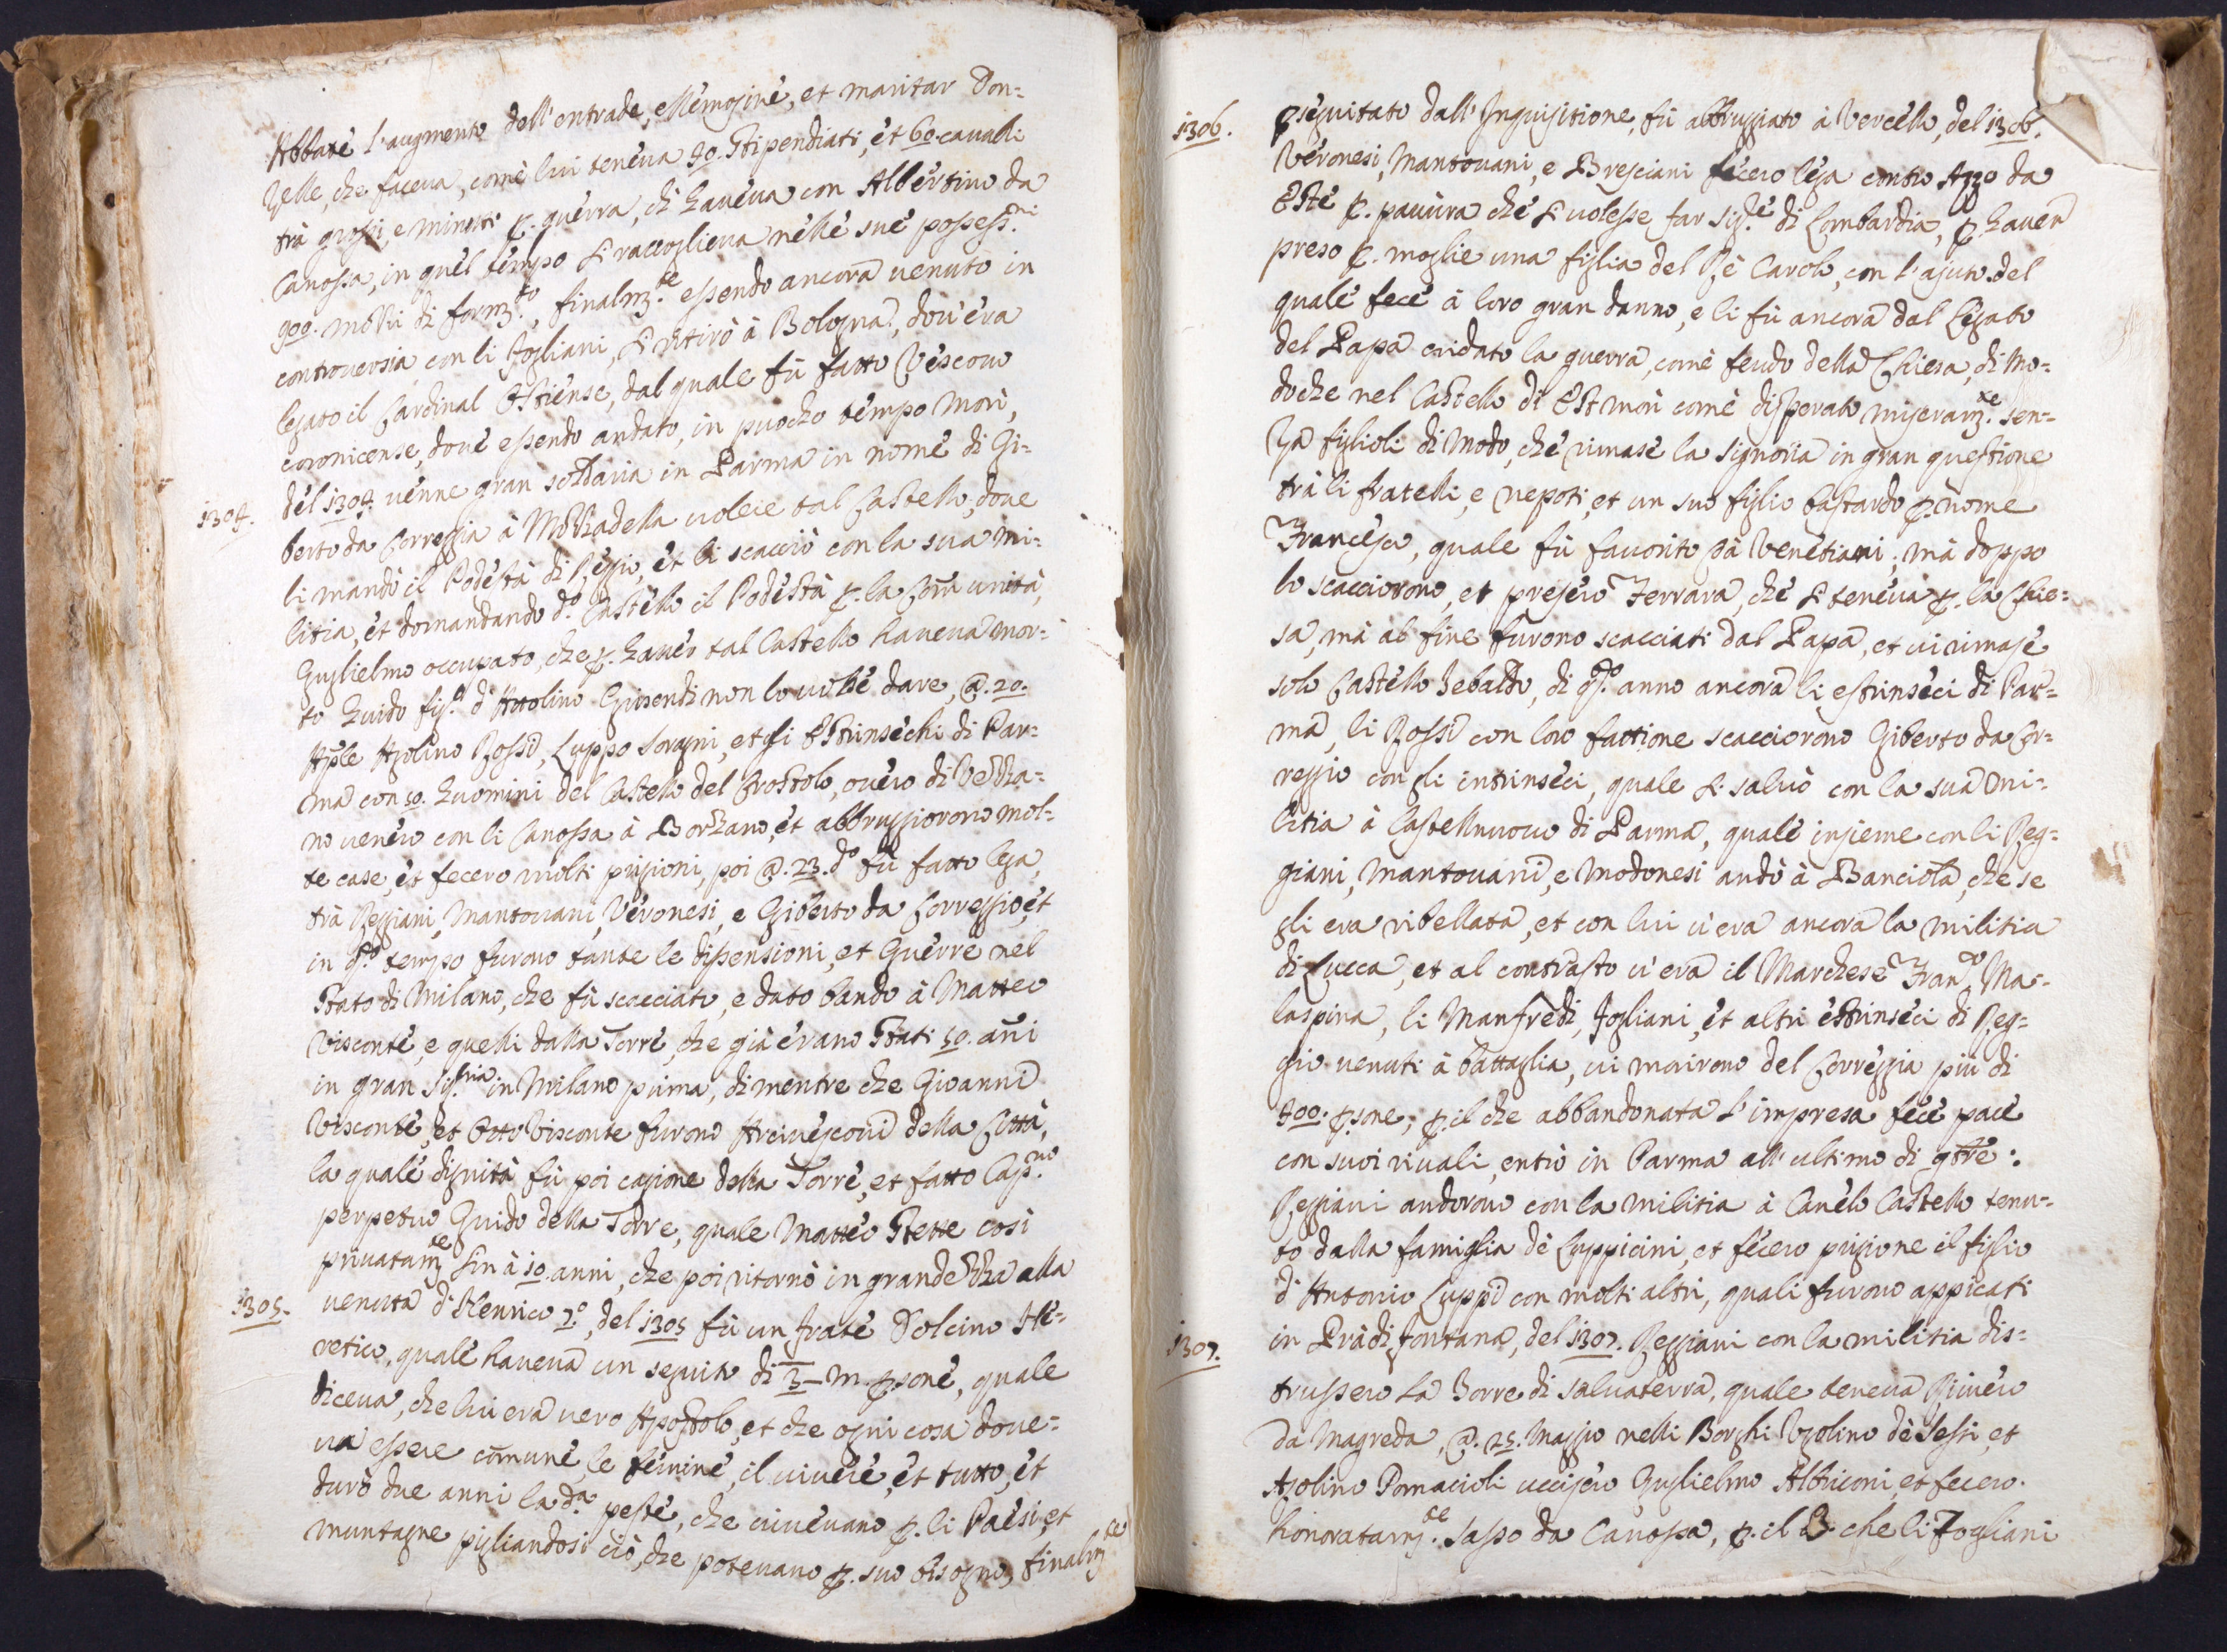 Abbate l'augmento dell'entrade, ellemosine, et maritar Don=
zelle, che faceua, come lui teneua 40. stipendiati, et 60. caualli
trà grossi, e minuti ꝑ. guerra, ch'haueua con Albertino da
Canossa, in quel tempo si raccoglieua nelle sue possess.ni
900. mozzi di form.to, finalm.te essendo ancora uenuto in
controuersia con li Fogliani, si ritirò à Bologna, dou'era
legato il Cardinal Ostiense, dal quale fù fatto Vescouo
coronicense, doue essendo andato, in puocho tempo morì,
1304. del 1304. uenne gran soldaria in Parma in nome di Gi=
berto da Correggia à Mozzadella uoleie tal Castello, doue
li mandò il Podestà di Reggio, et li scacciò con la sua mi=
litia, et domandando d.o Castello il Podestà ꝑ. la Com̃unità,
Guglielmo occupato, che ꝑ. hauer tal Castello haueua mor=
to Guido fig.o d'Attolino Grisendi non lo uolse dare, @. 20.
Aple Azolino Rossi, Luppo Soragni, et gli Estrinsechi di Par=
ma con 50. huomini del Castello del Crostolo, ouero di Vezza=
no uenero con li Canossa à Borzano, et abbruggiorono mol=
te case, et fecero molti prigioni, poi @. 23. d.o fù fatto lega,
trà Reggiani, Mantouani, Veronesi, e Giberto da Correggio, et
in q.o tempo furono tante le dissensioni, et Guerre nel
Stato di Milano, che fù scacciato, e dato bando à Matteo
Visconte, e quelli dalla Torre, che già erano stati 50. añi
in gran sig.ria in Milano prima, di mentre che Gioanni
Visconte, et Otto Visconte furono Arciuescoui della Città,
la quale dignità fù poi cagione della Torre, et fatto Cap.no
perpetuo Guido della Torre, quale Matteo stette così
priuatam.te sin à 10. anni, che poi ritornò in grandezza alla
1305. uenuta d'Henrico 7.o, del 1305 fù un frate Dolcino He=
retico, quale haueua un seguito di 3 m. ꝑsone, quale
diceua, che lui era uero Apostolo, et che ogni cosa doue=
ua essere com̃une, le femine, il uiuere, et tutto, et
durò due anni la d.a peste, che uiueuano ꝑ. li Paesi, et
muntagne pigliandosi ciò, che poteuano ꝑ. suo bisogno, finalm.te
1306. ꝑseguitato dall'Inquisitione, fù abbruggiato à Vercello, del 1306.
Veronesi, Mantouani, e Bresciani fecero lega contro Azzo da
Este ꝑ. pauura che si uolesse far sig.re di Lombardia, ꝑ. hauer
preso ꝑ. moglie una figlia del Rè Carolo, con l'ajuto del
quale fece à loro gran danno, e li fù ancora dal Legato
del Papa cridato la guerra, come feudo della Chiesa, di mo=
doche nel Castello di Est morì come disperato miseram.te sen=
za figlioli di modo, che rimase la signoria in gran questione
trà li fratelli, e nepoti, et un suo figlio bastardo ꝑ. nome
Francesco, quale fù fauorito dà Venetiani; mà doppo
lo scacciorono, et presero Ferrara, che si teneua ꝑ. la Chie=
sa, mà al fine furono scacciati dal Papa, et ui rimase
solo Castello Tebaldo, di q.o anno ancora li estrinseci di Par=
ma, li Rossi con loro fattione scacciorono Giberto da Cor=
reggio con gli intrinseci, quale si saluò con la sua mi=
litia à Castelnuouo di Parma, quale insieme con li Reg=
giani, Mantouani, e Modonesi andò à Banciola, che se
gli era ribellata, et con lui u'era ancora la militia
di Lucca, et al contrasto u'era il Marchese Fran.co Ma=
laspina, li Manfredi, Fogliani, et altri estrinseci di Reg=
gio uenuti à battaglia, ui morirono del Correggia più di
400. ꝑsone; ꝑ. il che abbandonata l'impresa fece pace
con suoi riuali, entrò in Parma all'ultimo di 9bre:.
Reggiani andorono con la militia à Canelo Castello tenu=
to dalla famiglia dè Luppicini, et fecero prigione il figlio
d'Antonio Luppi con molti altri, quali furono appicati
1307. in Prà di Fontana, del 1307. Reggiani con la militia dis=
trussero la Torre di Saluaterra, quale teneua Riniero
da Magreda, @. 25. Maggio nelli Borghi Ugolino dè Sessi, et
Azolino Pomacioli uccisero Guglielmo Albriconi, et fecero.
honoratam.te. Sasso da Canossa, ꝑ. il che li Fogliani